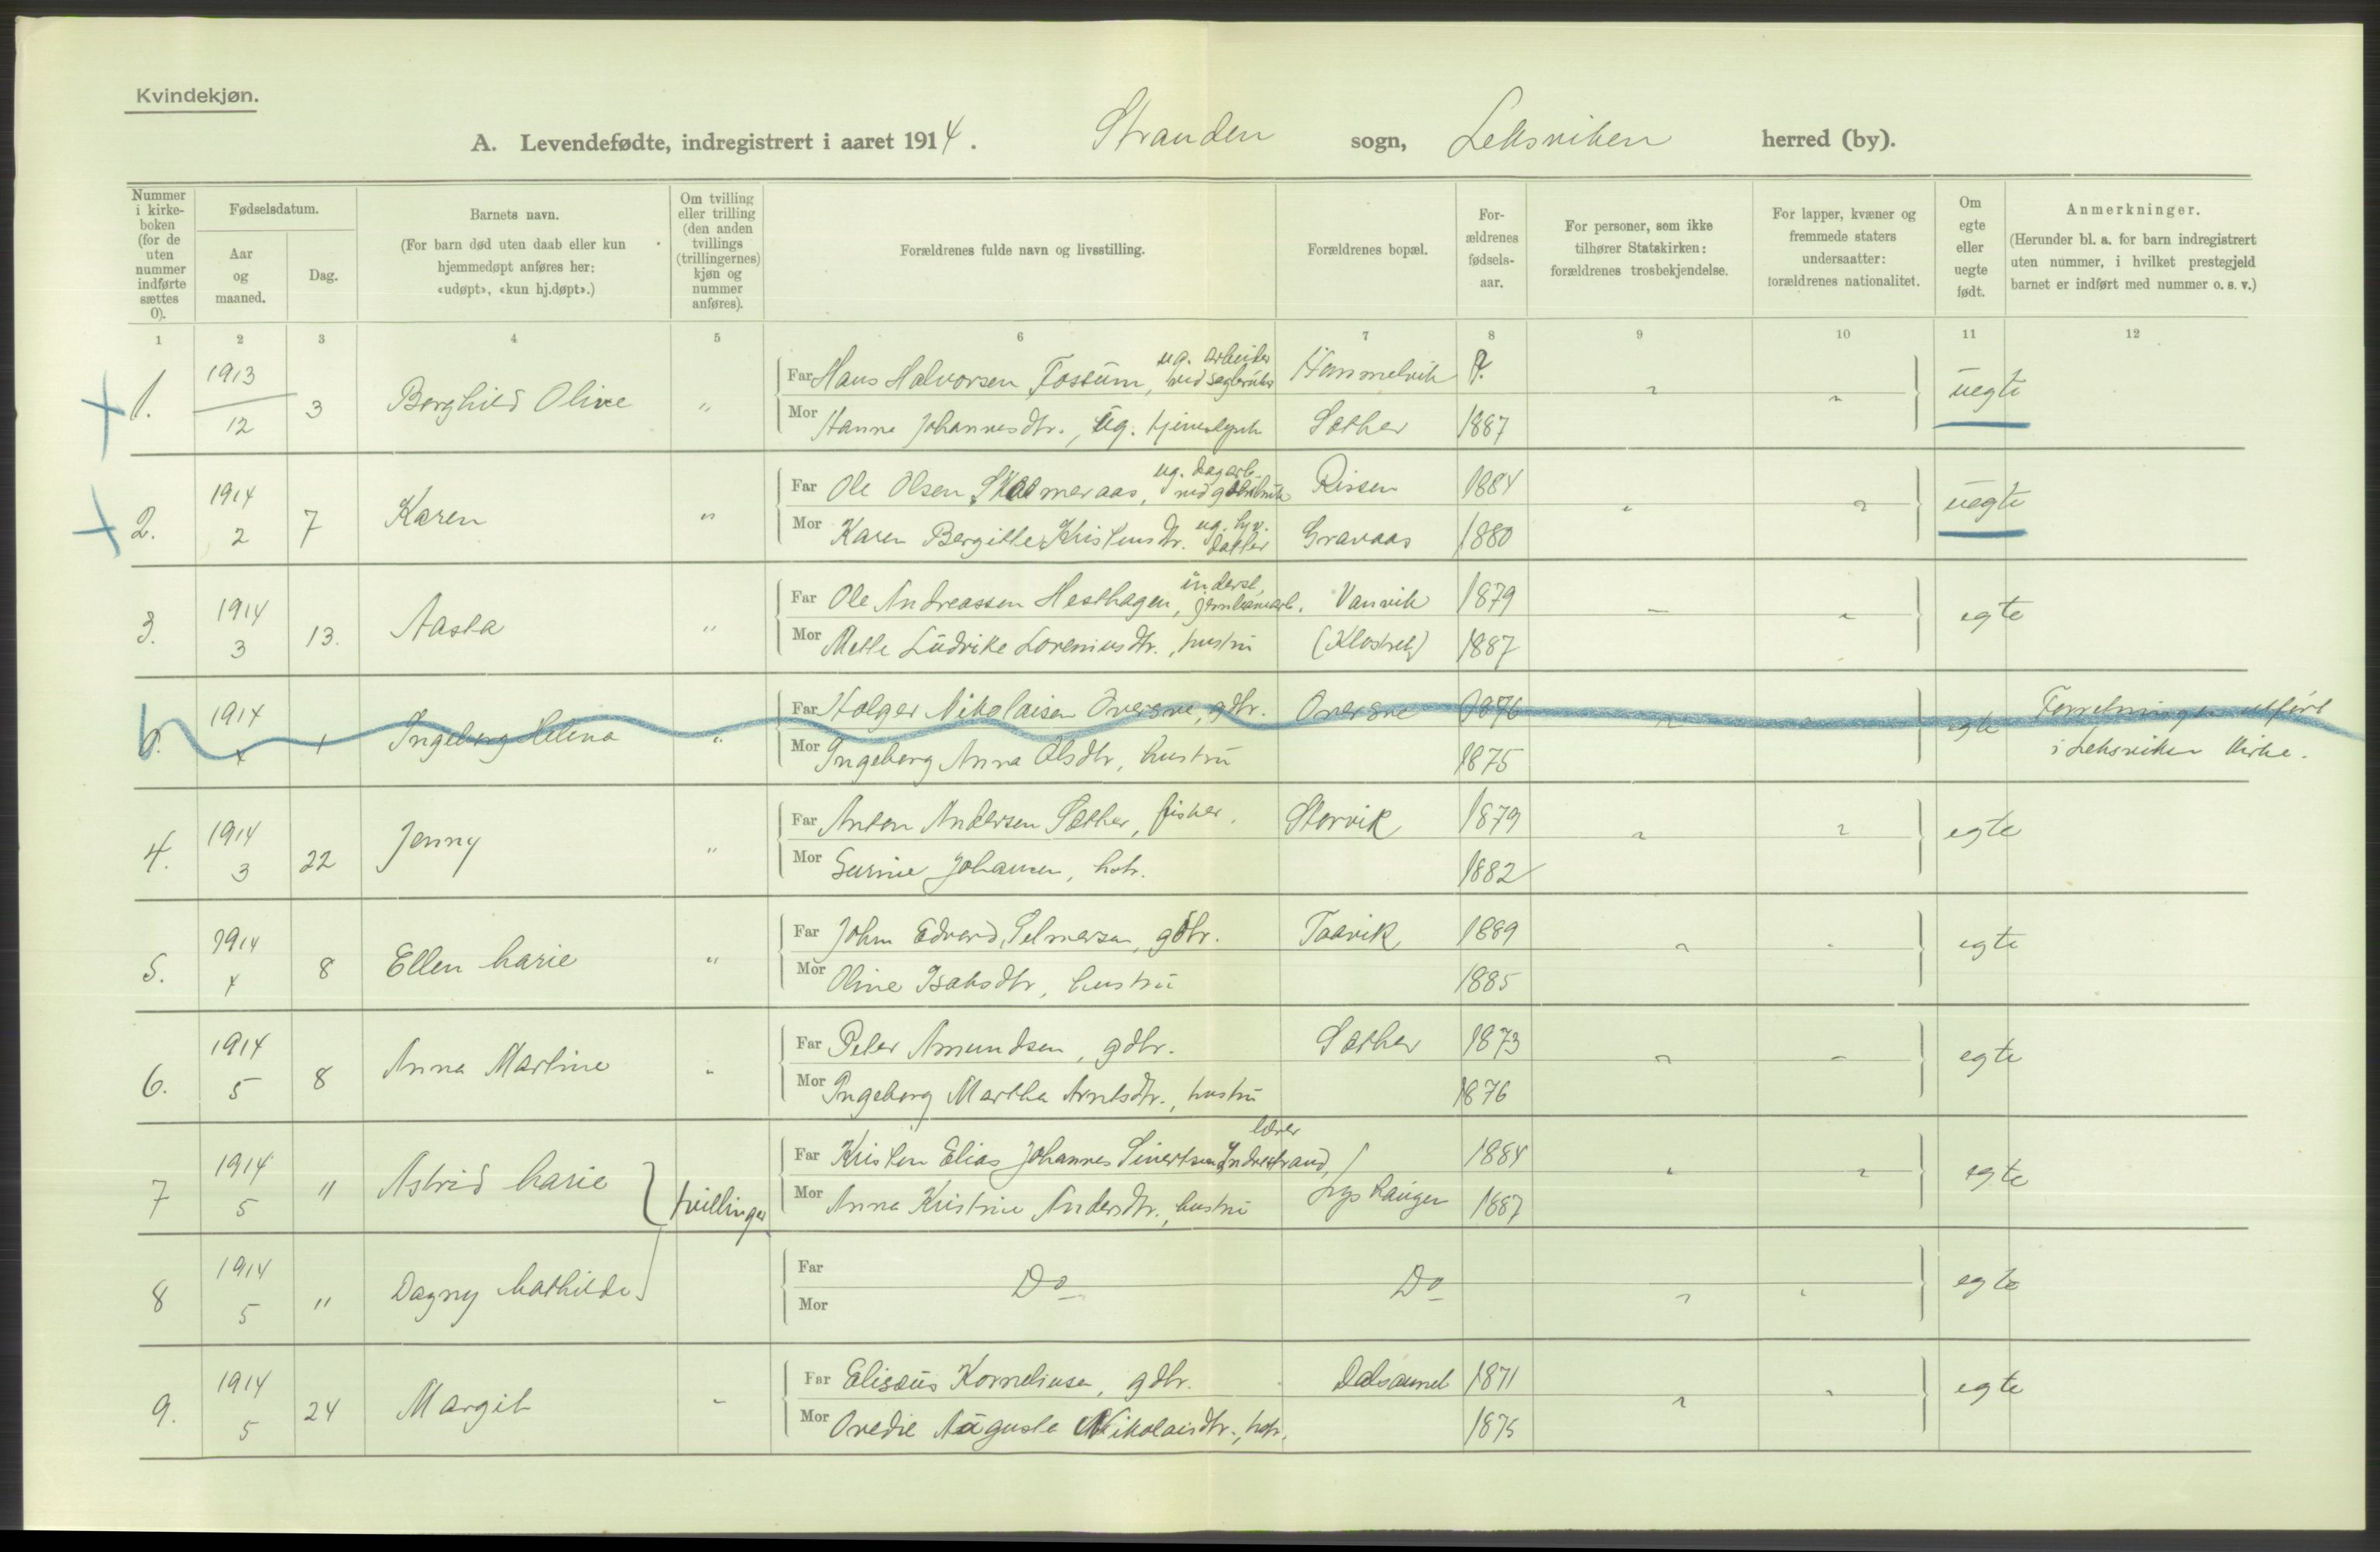 Kvindekjøn.
A. Levendefødte, indregistrert i aaret 1914. Stranden sogn, Leksviken herred (by).
Nummer i kirke-boken (for de uten nummer indførte sættes 0).
Fødselsdatum.
Aar og maaned.
Dag.
Barnets navn.
(For barn død uten daab eller kun hjemmedøpt anføres her: «udøpt», «kun hj.døpt».)
Om tvilling eller trilling (den anden tvillings (trillingernes) kjøn og nummer anføres).
Forældrenes fulde navn og livsstilling.
Forældrenes bopæl.
For-ældrenes fødsels-aar.
For personer, som ikke tilhører Statskirken: forældrenes trosbekjendelse.
For lapper, kvæner og fremmede staters undersaatter: forældrenes nationalitet.
Om egte eller uegte født.
Anmerkninger.
(Herunder bl. a. for barn indregistrert uten nummer, i hvilket prestegjeld barnet er indført med nummer o. s. v.)
1 2 3 4 5 6 7 8 9 10 11 12
1. 1913 12 3 Borghild Olive " Far Hans Halvorsen Fossum, ug. arbeider ved sagbruks Hammelvik ?. uegte
Mor Hanna Johannesdtr., ug. Sæther 1887
2. 1914 2 7 Karen " Far Ole Olsen ug. dagarb. Rissen 1884 uegte
Mor Karen Bergitte Kristensdtr. ug. datter Gravaas 1880
3. 1914 3 13. Aasta " Far Ole Andreassen Hesthagen, inderst, jernbanearb. Vanvik 1879 egte
Mor Mette Ludvike Loreniusdtr., hustru (Klostret) 1887
1914 4 1 Ingeborg Helena " Far Holger Nikolaisen Oversve, gdbr. Oversve 1876 egte Forretningen utført
Mor Ingeborg Anna Olsdtr, hustru 1875 i Leksviken kirke.
4. 1914 3 22 Jenny " Far Anton Andersen Sæther, fisker. Storvik 1879 egte
Mor Gurine Johansen, hstr. 1882
5. 1914 4 8 Ellen Marie " Far John Edvard Selmersen, gdbr. Taavik 1889 egte
Mor Oline Isaksdtr, hustru 1885
6. 1914 5 8 Anna Martine " Far Peter Amundsen, gdbr. Sæther 1873 egte
Mor Ingeborg Martha Arntsdtr., hustru 1876
7 1914 5 " Astrid Marie tvillinger Far Kristen Elias Johannes Sivertsen Indrestrand, lærer 1884 egte
Mor Anna Kristine Andersdtr., hustru Lyshaugen 1887
8 1914 5 " Dagny Mathilde Far Do Do egte
Mor
9. 1914 5 24 Margit " Far Elisæus Korneliusen, gdbr. Dalsaunet 1871 egte
Mor Ovedie Augusta Nikolaisdtr., hstr. 1875